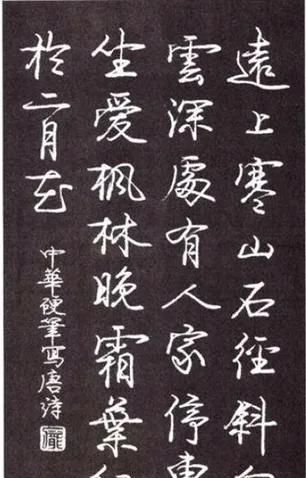 遠上寒山石徑斜
雲深處有人家停車
坐愛楓林晚霜葉紅
於二月花
中華硬筆寫唐詩